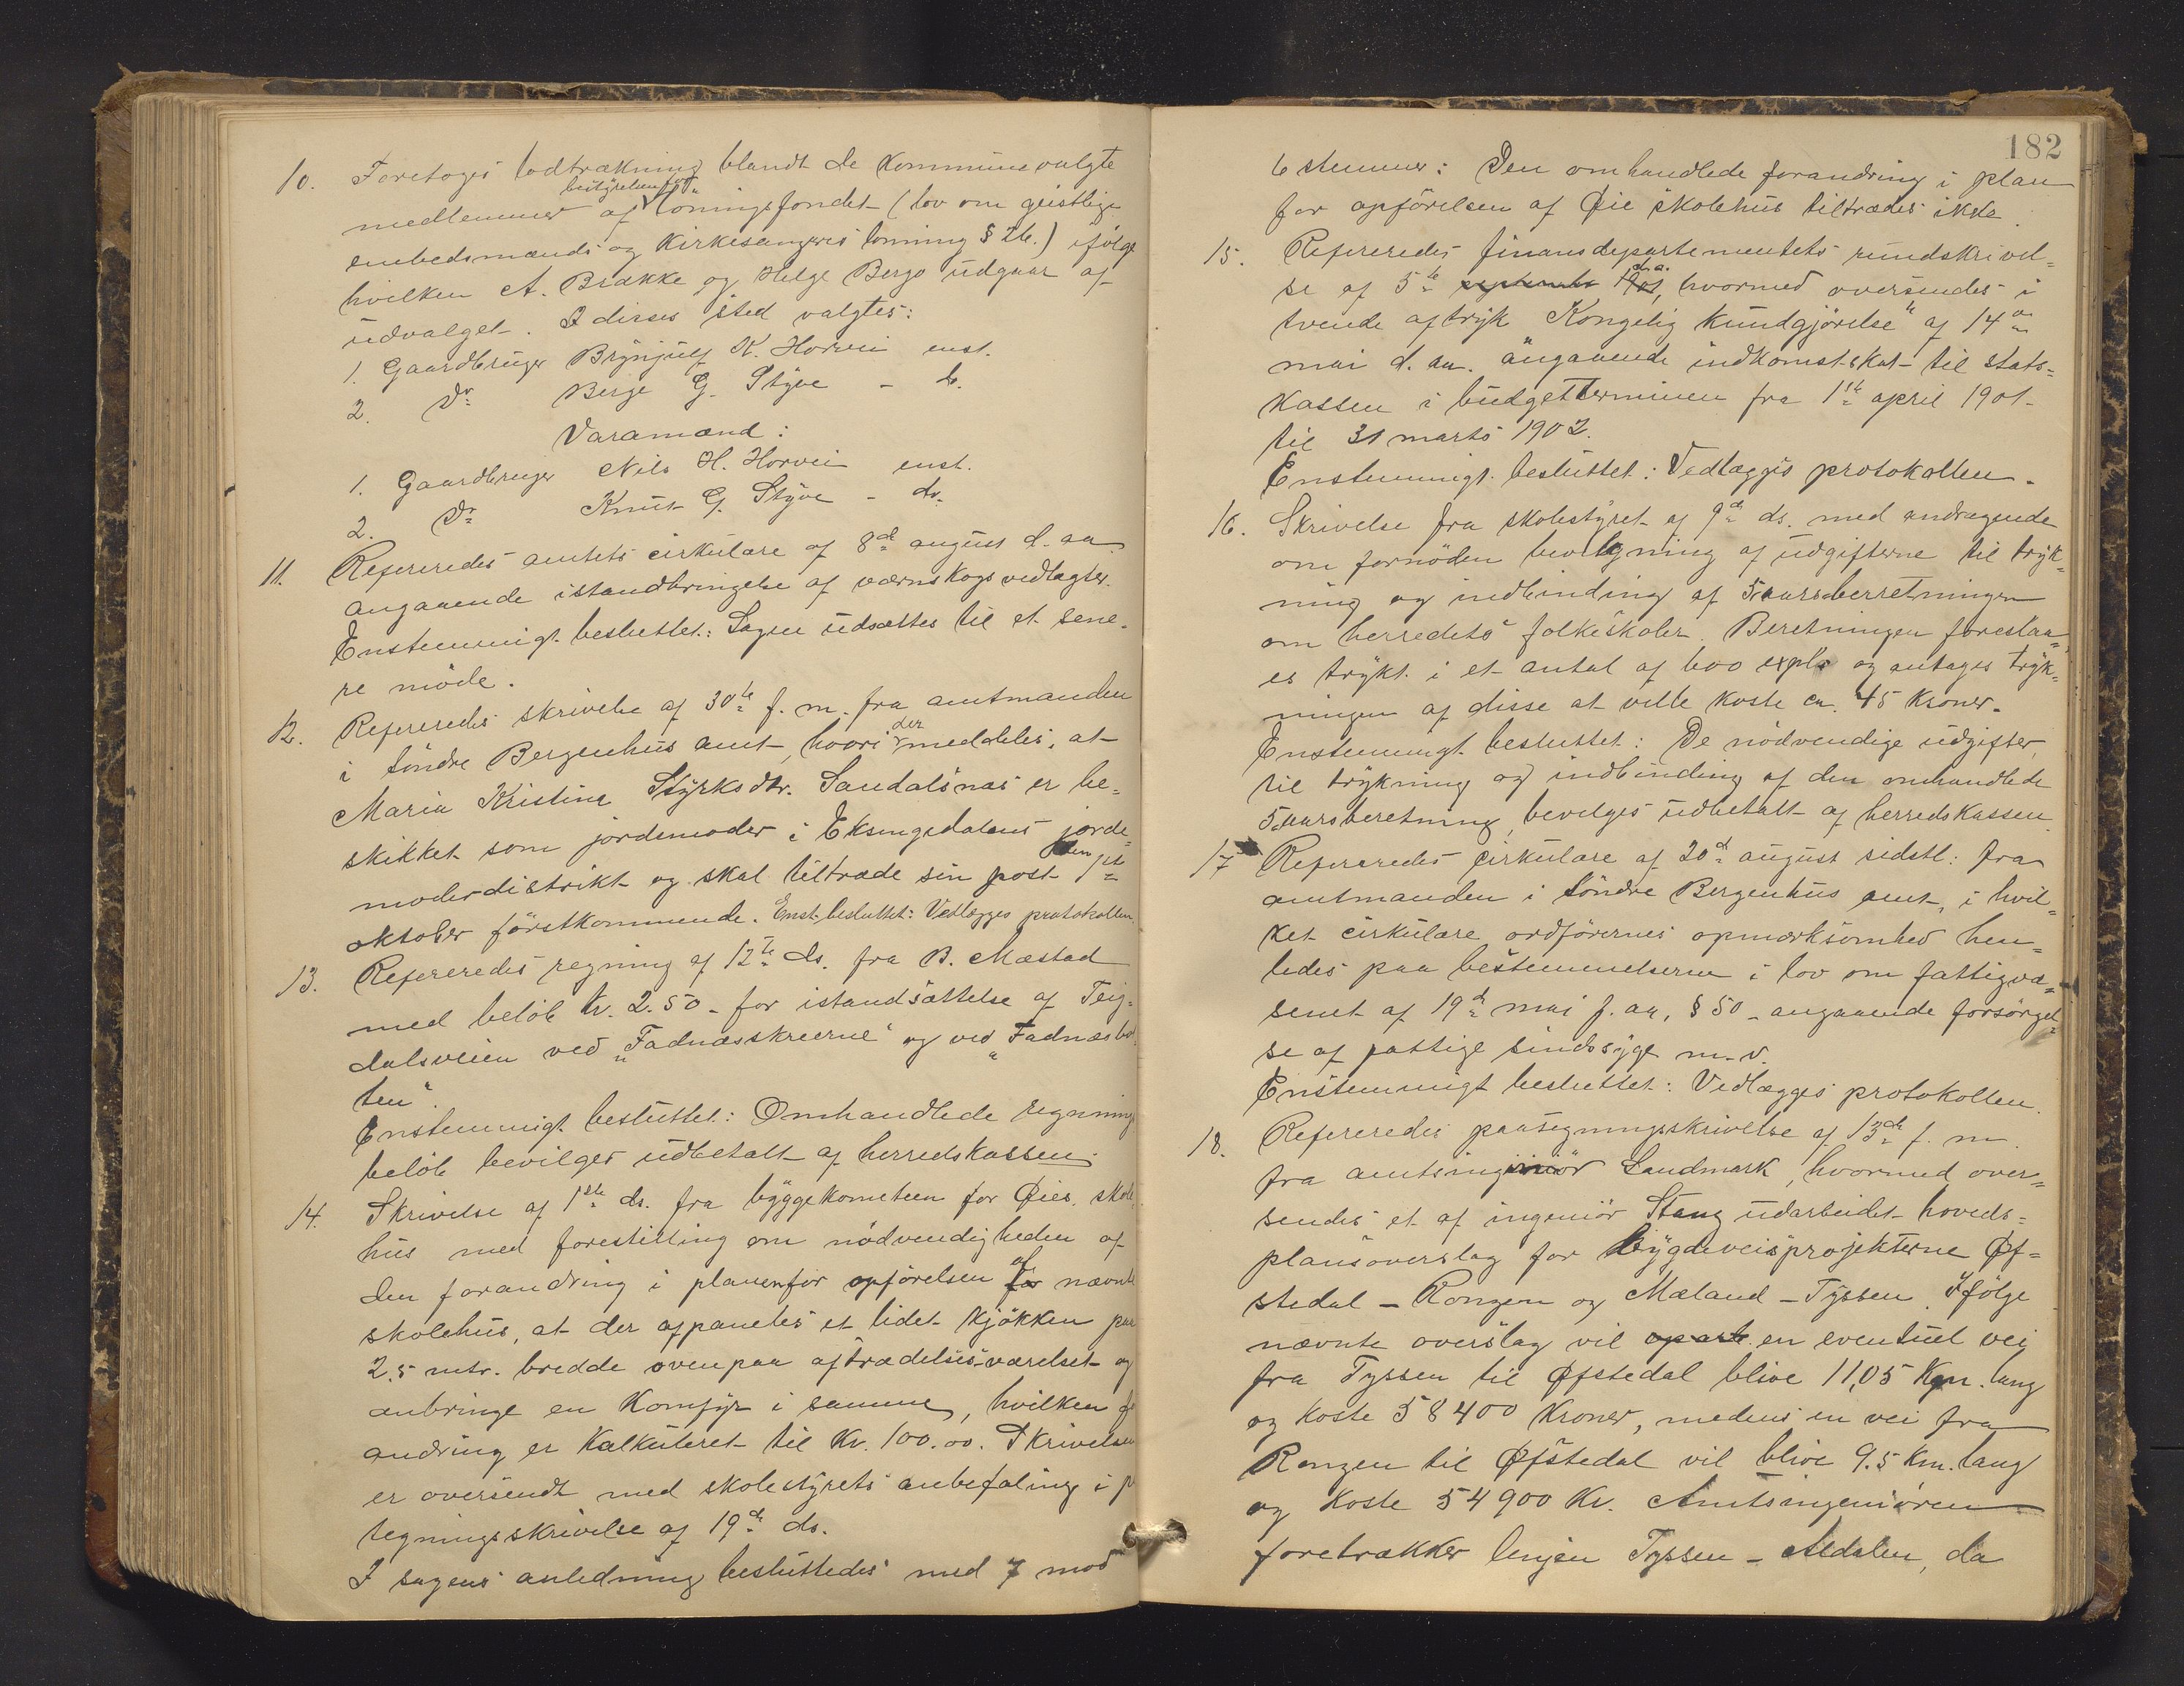 10. Foretoges lodtrækning blandt de kommunevalgte
medlemmer af bestyrelsen for lønningsfondet (lov om geistlige
embedsmænds og kirkesangeres lønning § 26.) ifølge
hvilken A. Brække og Helge Bergo udgaar af
udvalget. I disses sted valgtes:
1. Gaardbruger Brynjulf K. Horvei enst.
2. Do Berge G. Styve - do.
Varamænd:
1. Gaardbruger Nils H. Horvei enst.
2. Do Knut G. Styve - do.
11. Refereredes amtets cirkulære af 8de august d. aa.
angaaende istandbringelse af værnskogsvedtægter.
Enstemmigt besluttet: Sagen udsættes til et sene-
re møde.
12. Refereredes skrivelse af 30te f. m. fra amtmanden
i Søndre Bergenhus amt, hvori der meddeles, at
Maria Kristina Styrksdtr. Sandalsnæs er be-
skikket som jordemoder i Eksingedalens jorde-
moderdistrikt og skal tiltræde sin post den 1ste
oktober førstkommende. Enst. besluttet: Vedlægges protokollen
13. Refereredes regning af 12te ds. fra B. Mæstad
med beløb kr. 2.50 for istandsættelse af Teig-
dalsveien ved „Fadnæsskreerne" og ved „Fadnæsbo
ten".
Enstemmigt besluttet: Omhandlede regnings
beløb bevilges udbetalt af herredskassen.
14. Skrivelse af 1ste ds. fra byggekomiteen for Øies skole
hus med forestilling om nødvendigheden af
den forandring i planen for opførelsen for af nævnte
skolehus, at der afpaneles et lidet kjøkken paa
2,5 mtr. bredde ovenpaa aftrædelsesværelset og
anbringe en komfyr i samme, hvilken f
andring er kalkuleret til Kr. 100.00. Skrivelsen
er oversendt med skolestyrets anbefaling i p
tegningsskrivelse af 19de ds.
I sagens anledning besluttedes med 7 mod
182
6 stemmer: Den omhandlede forandring i plan
for opførelsen af Øie skolehus tiltrædes ikke.
15. Refereredes finansdepartementets rundskrivel-
se af 5te september 1901 d. a., hvormed oversendes i
tvende aftryk „Kongelig kundgjørelse" af 14de
mai d. aa. angaaende indkomstskat til stats-
kassen i budgetterminen fra 1ste april 1901
til 31 marts 1902.
Enstemmigt besluttet: Vedlægges protokollen.
16. Skrivelse fra skolestyret af 9de ds. med andragende
om fornøden bevilgning af udgifterne til tryk-
ning og indbinding af 5aarsberretningen
om herredets folkeskoler. Beretningen foreslaa-
es trykt i et antal af 600 expl. og antages tryk-
ningen af disse at ville koste ca. 45 kroner.
Enstemmigt besluttet: De nødvendige udgifter
til trykning og indbinding af den omhandlede
5aarsberetning bevilges udbetalt af herredskassen.
17 Refereredes cirkulære af 20de august sidstl: fra
amtmanden i Søndre Bergenhus amt, i hvil-
ket cirkulære ordførernes opmærksomhed hen-
ledes paa bestemmelserne i lov om fattigvæ-
senet af 19de mai f. aa. § 50 angaaende forsørgel-
se af fattige sindssyge m. v.
Enstemmigt besluttet: Vedlægges protokollen.
18. Refereredes paategningsskrivelse af 13de f. m.
fra amtsingeniør Landmark, hvormed over-
sendes et af ingeniør Stang udarbeidet hoveds-
plansoverslag for bygdeveisprojekterne Øf-
stedal - Rongen og Mæland - Tyssen. Ifølge
nævnte overslag vil en eventuel vei
fra Tyssen til Øfstedal blive 11,05 Km. lang
og koste 58400 Kroner, medens en vei fra
Rongen til Øfstedal vil blive 9.5 km. lang
og koste 54900 Kr. Amtsingeniøren
foretrækker linjen Tyssen - Aldalen, da